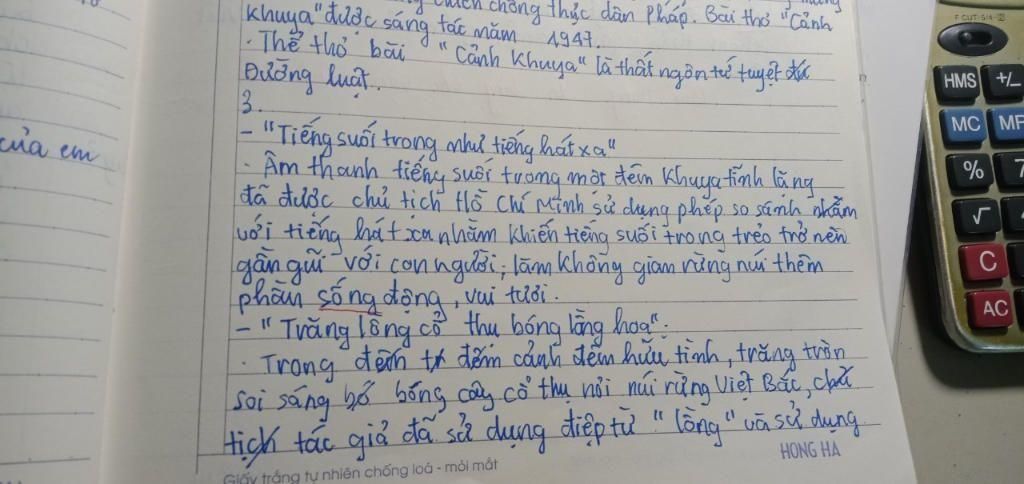 chiến chống thực dân Pháp. Bài thơ "Cảnh
khuya" được sáng tác năm 1947.
· Thể thơ bài "Cảnh Khuya" là thất ngôn tứ tuyệt
Đường luật.
3.
- "Tiếng suối trong như tiếng hát xa"
· Âm thanh tiếng suối trong một đêm khuya tĩnh lặng
đã được chủ tịch Hồ Chí Minh sử dụng phép so sánh nhằm
với tiếng hát xa nhằm khiến tiếng suối trong trẻo trở nên
gần gũi với con người, làm không gian rừng núi thêm
phần sống động, vui tươi.
- "Trăng lồng cổ thụ bóng lồng hoa".
· Trong đêm tr đếm cảnh đêm hữu tình, trăng tròn
soi sáng bó bóng cây cổ thụ nơi núi rừng Việt Bắc, chủ
tịch tác giả đã sử dụng điệp từ "lồng" và sử dụng
HONG HA
Giấy trắng tự nhiên chống loá - mỏi mắt
của em
FCUT-S/4
HMS
+/_
MC
MR
%
7
√
C
AC